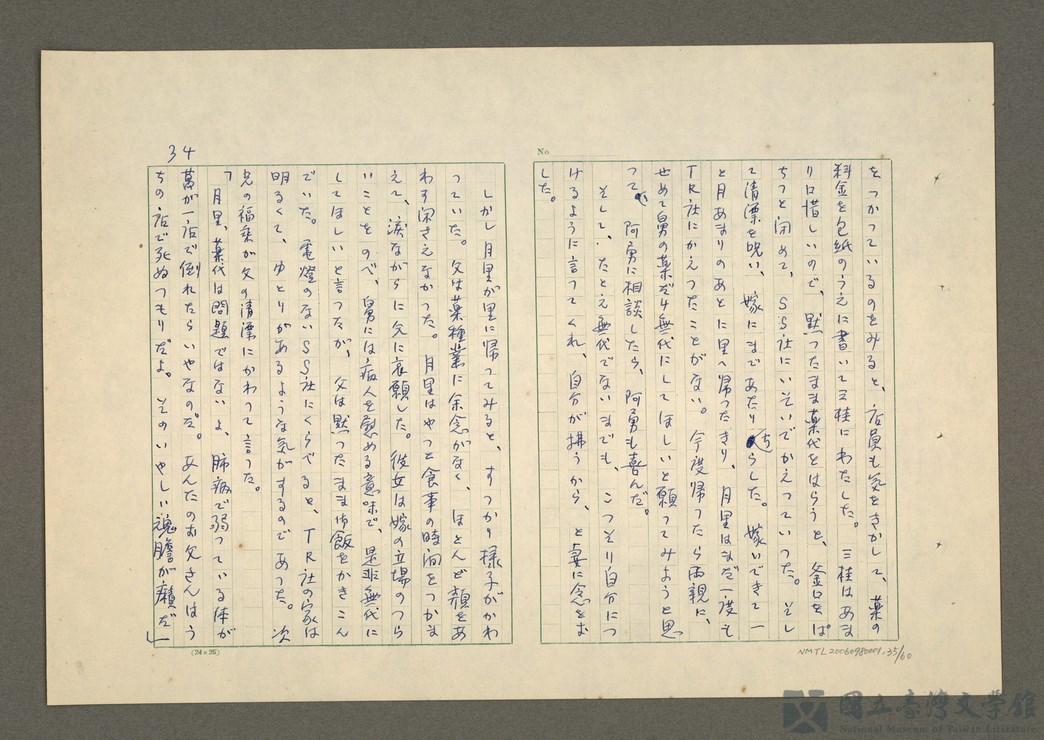 No
をつかっているのをみると、店員も気をきかして、薬の
料金を包紙のうえに書いて三桂にわたした。三桂はあま
り口惜しいので、黙つたまま薬代をはらうと、釜口をぱ
ちつと閉めて、SS社にいそいでかえっていつた。そし
て清漂を呪い、嫁にまであたりちらした。嫁いできて一
と月あまりのあとに里へ帰つたきり、月里はまだ一度も
TR社にかえつたことがない。今度帰つたら両親に、
せめて舅の薬だけ無代にしてほしいと願ってみようと思
つて、阿勇に相談したら、阿勇も喜んだ。
そして、たとえ無代でないまでも、こつそり自分につ
けるように言つてくれ、自分が拂うから、と妻に念をお
した。
34
しかし月里が里に帰ってみると、すつかり様子がかわ
っていた。父は薬種業に余念がなく、ほとんど顔をあ
わす閑さえなかつた。月里はやつと食事の時間をつかま
えて、涙ながらに父に哀願した。彼女は嫁の立場のつら
いことをのべ、舅には病人を慰める意味で、是非無代に
してほしいと言つたが、父は黙つたまま御飯をかきこん
でいた。電燈のないSS社にくらべると、TR社の家は
明るくて、ゆとりがあるような気がするのであつた。次
兄の福乗が父の清漂にかわつて言つた。
「月里、薬代は問題ではないよ、肺病で弱つている体が
萬が一店で倒れたらいやなのだ。あんたのお父さんはう
ちの店で死ぬつもりだよ。そのいやしい魂膽が癪だ」
(24×25)
NMTL20060980001.35/60
國立臺灣文學館
National Museum of Taiwan Literature